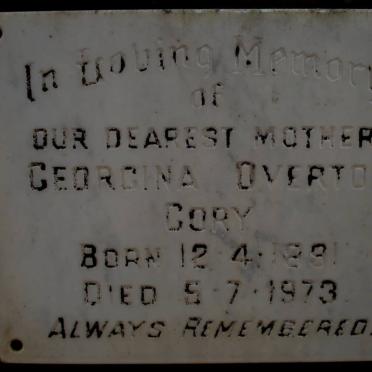 In Loving Memory
of
OUR DEAREST MOTHER
GEORGINA OVERTO
CORY
BORN 12·4·1891
DIED 5·7·1973
ALWAYS REMEMBERED.